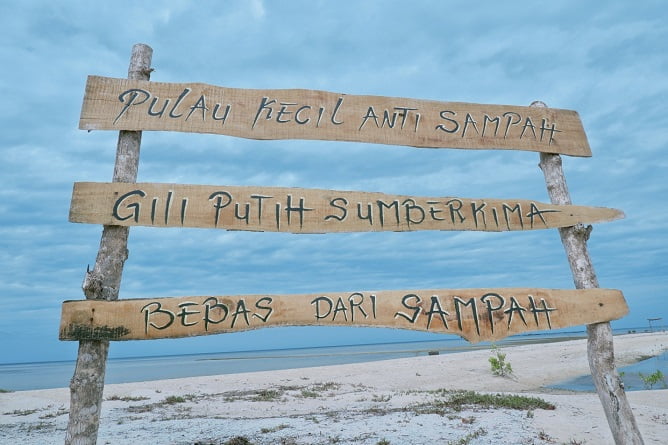 PULAU KECIL ANTI SAMPAH
GILI PUTIH SUMBERKIMA
BEBAS DARI SAMPAH